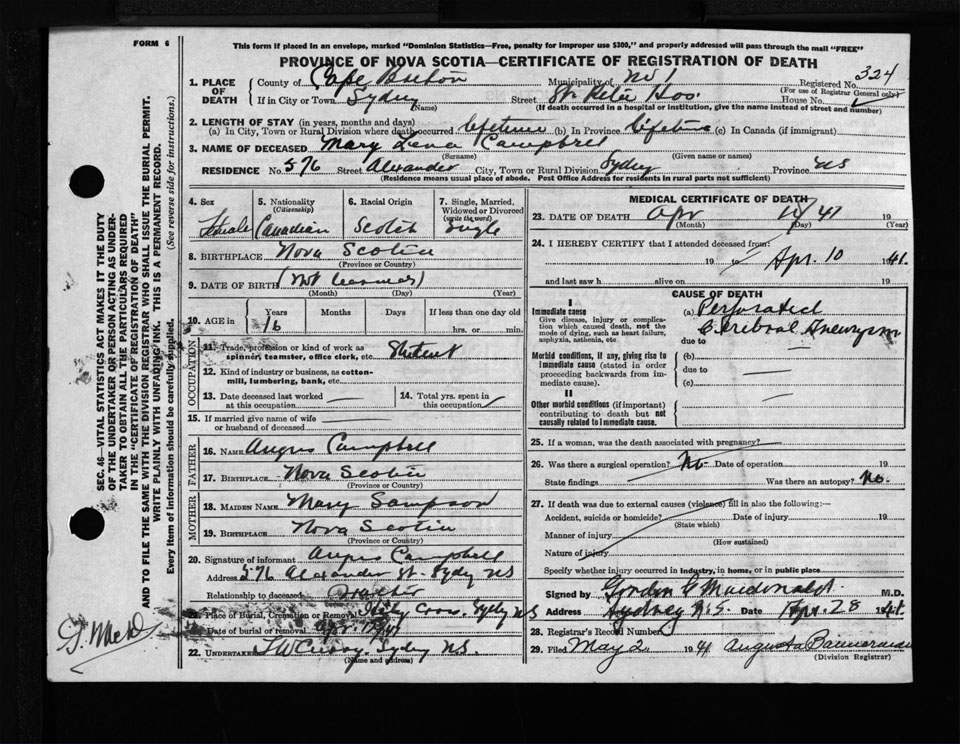 FORM 6
This form if placed in an envelope, marked "Dominion Statistics—Free, penalty for improper use $300," and properly addressed will pass through the mail "FREE"
PROVINCE OF NOVA SCOTIA—CERTIFICATE OF REGISTRATION OF DEATH
1. PLACE OF DEATH County of Cape Breton Municipality of No 1 Registered No. 324
(For use of Registrar General only)
If in City or Town Sydney (Name) Street House No.
(If death occurred in a hospital or institution, give the name instead of street and number)
2. LENGTH OF STAY (in years, months and days)
(a) In City, Town or Rural Division where death occurred lifetime (b) In Province lifetime (c) In Canada (if immigrant)
3. NAME OF DECEASED Mary Lena Campbell
(Surname) (Given name or names)
RESIDENCE No. 576 Street Alexander City, Town or Rural Division Sydney Province NS
(Residence means usual place of abode. Post Office Address for residents in rural parts not sufficient)
4. Sex Female
5. Nationality (Citizenship) Canadian
6. Racial Origin Scotch
7. Single, Married, Widowed or Divorced (write the word) Single
8. BIRTHPLACE Nova Scotia
(Province or Country)
9. DATE OF BIRTH (Not
(Month) (Day) (Year)
10. AGE in Years 16 Months Days If less than one day hrs. or min.
OCCUPATION
11. Trade, profession or kind of work as spinner, teamster, office clerk, etc. Student
12. Kind of industry or business, as cotton-mill, lumbering, bank, etc.
13. Date deceased last worked at this occupation
14. Total yrs. spent in this occupation
15. If married give name of wife or husband of deceased
FATHER
16. NAME Angus Campbell
17. BIRTHPLACE Nova Scotia
(Province or Country)
MOTHER
18. MAIDEN NAME Mary Sampson
19. BIRTHPLACE Nova Scotia
(Province or Country)
20. Signature of informant Angus Campbell
Address 576 Alexander St. Sydney NS
Relationship to deceased
21. Place of Burial, Cremation or Removal Holy Cross, Sydney NS
Date of burial or removal Apr.
22. UNDERTAKER Sydney NS.
(Name and address)
MEDICAL CERTIFICATE OF DEATH
23. DATE OF DEATH Apr 41 19
(Month) (Day) (Year)
24. I HEREBY CERTIFY that I attended deceased from:
19 Apr. 10 1941.
and last saw h alive on 19
CAUSE OF DEATH
I
Immediate cause
Give disease, injury or complication which caused death, not the mode of dying, such as heart failure, asphyxia, asthenia, etc
(a) Perforated Cerebral Aneurysm
due to
Morbid conditions, if any, giving rise to immediate cause (stated in order proceeding backwards from immediate cause).
(b)
due to
(c)
II
Other morbid conditions (if important) contributing to death but not causally related to immediate cause.
25. If a woman, was the death associated with pregnancy?
26. Was there a surgical operation? No. Date of operation 19
State findings Was there an autopsy? No.
27. If death was due to external causes (violence) fill in also the following:—
Accident, suicide or homicide? Date of injury 19
(State which)
Manner of injury
(How sustained)
Nature of injury
Specify whether injury occurred in Industry, in home, or in public place
Signed by Gordon G Macdonald. M.D.
Address Sydney N.S. Date Apr. 28 1941.
28. Registrar's Record Number
29. Filed May 2 1941 Augusta Bannerman
(Division Registrar)
SEC. 46—VITAL STATISTICS ACT MAKES IT THE DUTY
OF THE UNDERTAKER OR PERSON ACTING AS UNDER-
TAKER TO OBTAIN ALL THE PARTICULARS REQUIRED
IN THE "CERTIFICATE OF REGISTRATION OF DEATH"
AND TO FILE THE SAME WITH THE DIVISION REGISTRAR WHO SHALL ISSUE THE BURIAL PERMIT.
WRITE PLAINLY WITH UNFADING INK. THIS IS A PERMANENT RECORD.
Every item of information should be carefully supplied. (See reverse side for instructions.)